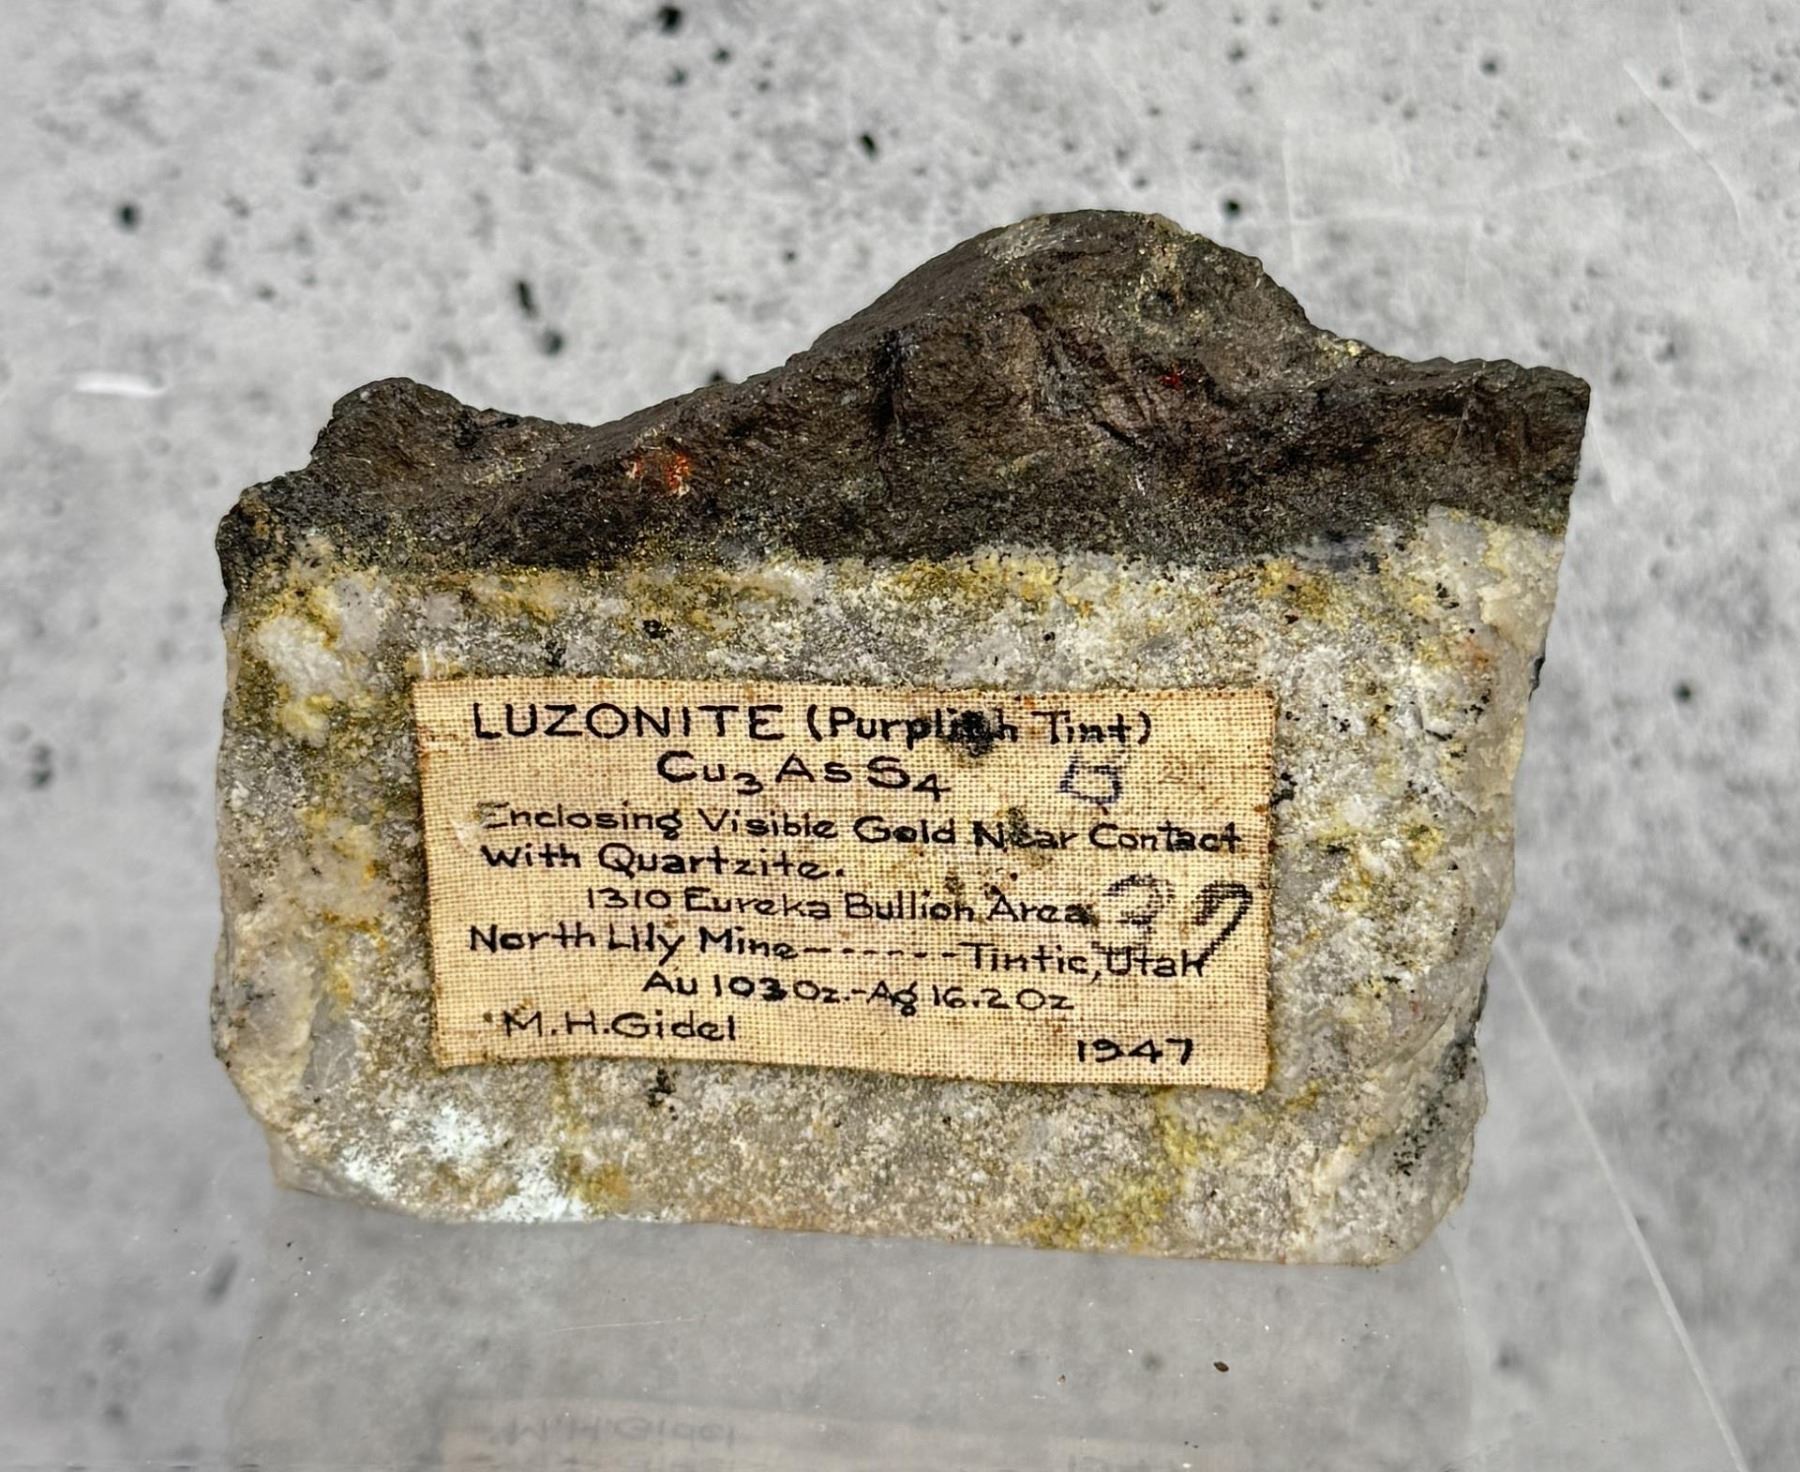 LUZONITE (Purplish Tint)
Cu3 As S4
Enclosing Visible Gold Near Contact
With Quartzite.
1310 Eureka Bullion Area
North Lily Mine------Tintic, Utah
Au 103 Oz.-Ag 16.2 Oz
M.H.Gidel
1947
M.H.Gidel